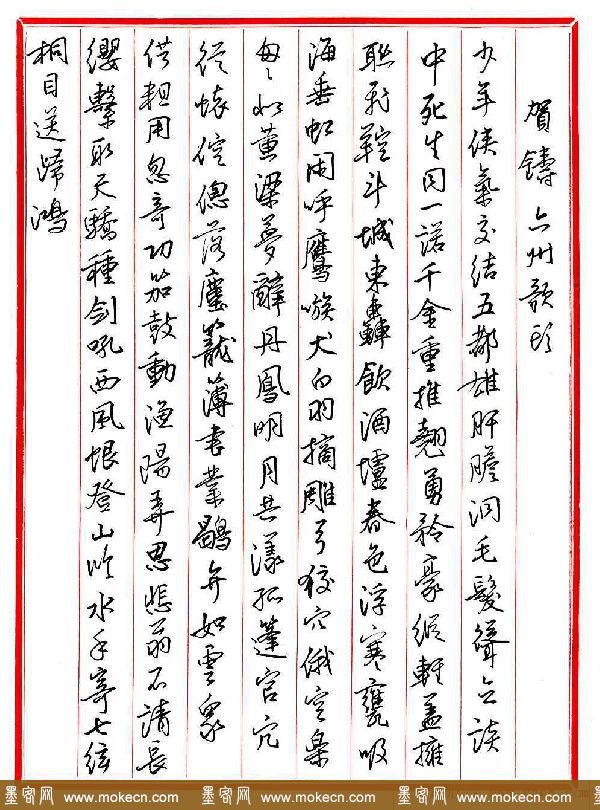 賀鑄 六州歌頭
少年俠氣交結五都雄肝膽洞毛髮聳立談
中死生同一諾千金重推翹勇矜豪縱輕蓋擁
聯飛鞚斗城東轟飲酒壚春色浮寒甕吸
海垂虹閑呼鷹嗾犬白羽摘雕弓狡穴俄空樂
匆匆似黃粱夢辭丹鳳明月共漾孤蓬官冗
從懷倥傯落塵籠簿書叢鶡弁如雲眾
供粗用忽奇功笳鼓動漁陽弄思悲翁不請長
纓繫取天驕種劍吼西風恨登山臨水手寄七弦
桐目送歸鴻
墨客网 www.mokecn.com 墨客网 www.mokecn.com 墨客网 www.mokecn.com 墨客网